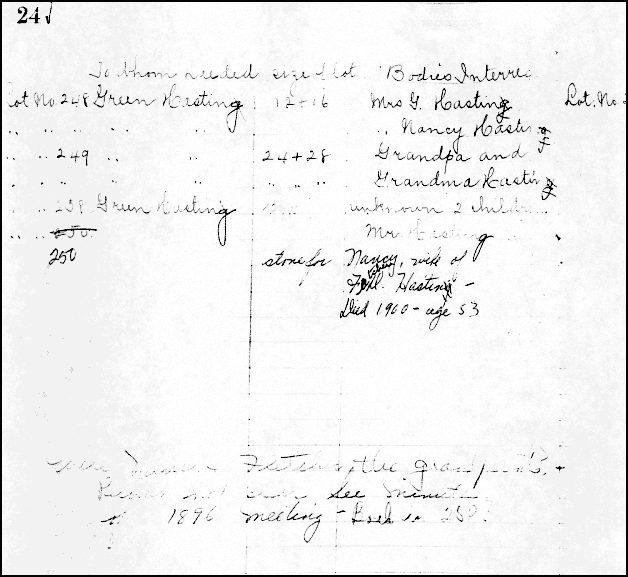 24
To Whom needed size of lot Bodies Interre
Lot No 248 Green Hasting 12+16 Mrs G. Hasting Lot. No.
" " " " " " Nancy Hasting
" " 249 " " 24+28 Grandpa and
" " " " " " " " Grandma Hasting
" " 238 Green Hasting unknown 2 childr
" " 250 Mr Hasting
250 stone for Nancy, wife of
Hasting -
Died 1900 - age 53
the
not see minutes
of 1896 meeting - 250.